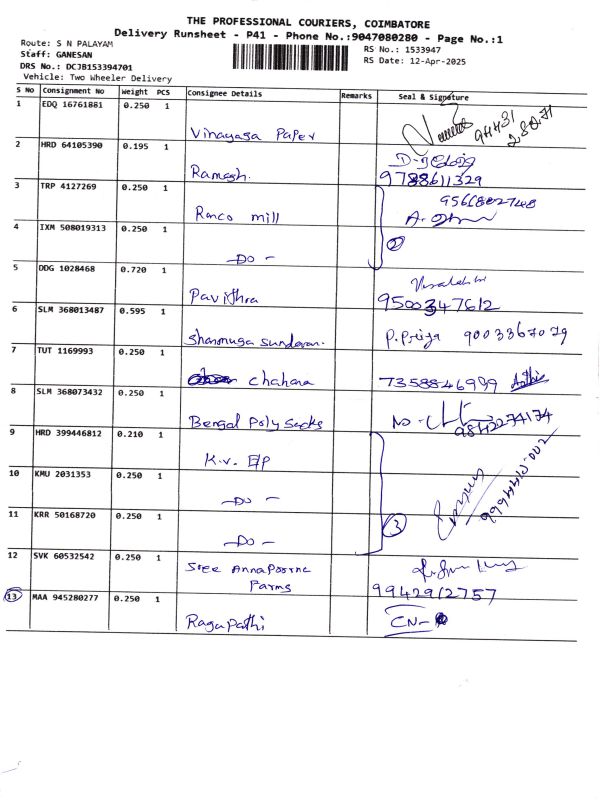 THE PROFESSIONAL COURIERS, COIMBATORE
Delivery Runsheet - P41 - Phone No.:9047080280 - Page No.:1
Route: S N PALAYAM
Staff: GANESAN
DRS No.: DCJB1533944701
Vehicle: Two Wheeler Delivery
RS No.: 1533947
RS Date: 12-Apr-2025
S No Consignment No Weight PCS Consignee Details Remarks Seal & Signature
1 EDQ 16761881 0.250 1 Vinayaga Paper
2 HRD 64105390 0.195 1 Ramesh. 9788611329
3 TRP 4127269 0.250 1 Ranco mill 9566802748
4 IXM 508019313 0.250 1 -DO- 2
5 DDG 1028468 0.720 1 Pavithra 9500347612
6 SLM 368013487 0.595 1 Shanmuga Sundaran. P.Priya 9003367079
7 TUT 1169993 0.250 1 chahana 7358846999
8 SLM 368073432 0.250 1 Bengal Poly Sacks 9842274174
9 HRD 399446812 0.210 1 K.V. E/P
10 KMU 2031353 0.250 1 -DO-
11 KRR 50168720 0.250 1 -DO- 3
12 SVK 60532542 0.250 1 Sree Annapoorna
Farms 9942912757
13 MAA 945280277 0.250 1 Ragupathi CN-